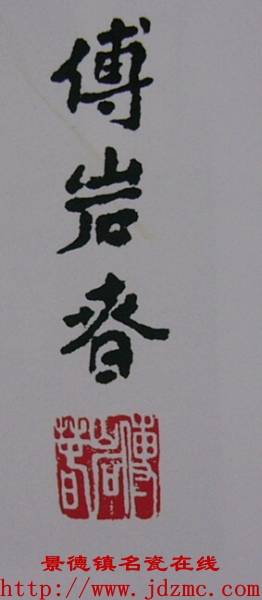 傅岩春
傅岩春
景德镇名瓷在线
http://www.jdzmc.com